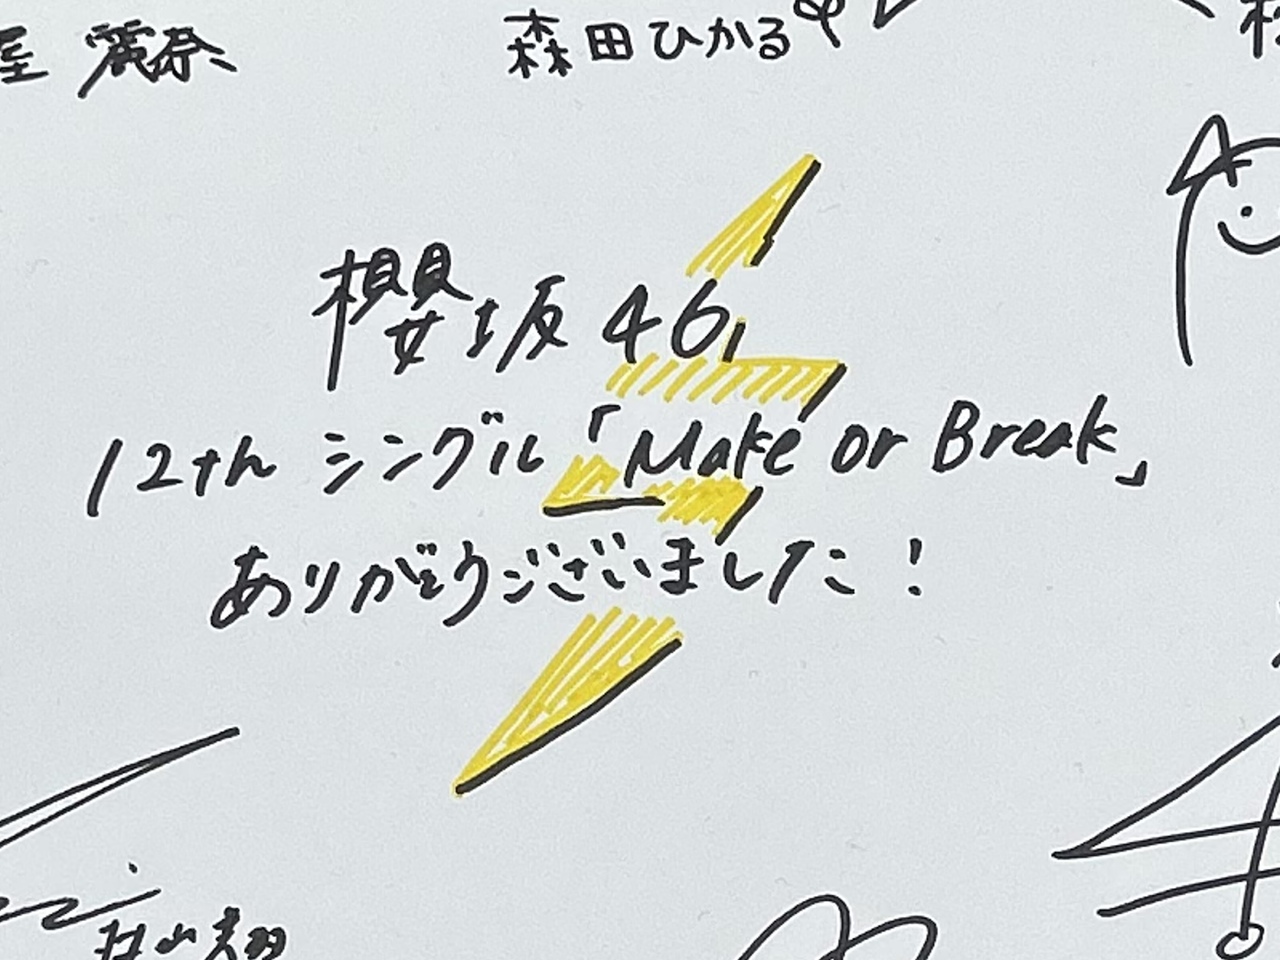 屋 麗奈
森田ひかる
櫻坂46
12th シングル「Make or Break」
ありがとうございました!
村山美羽